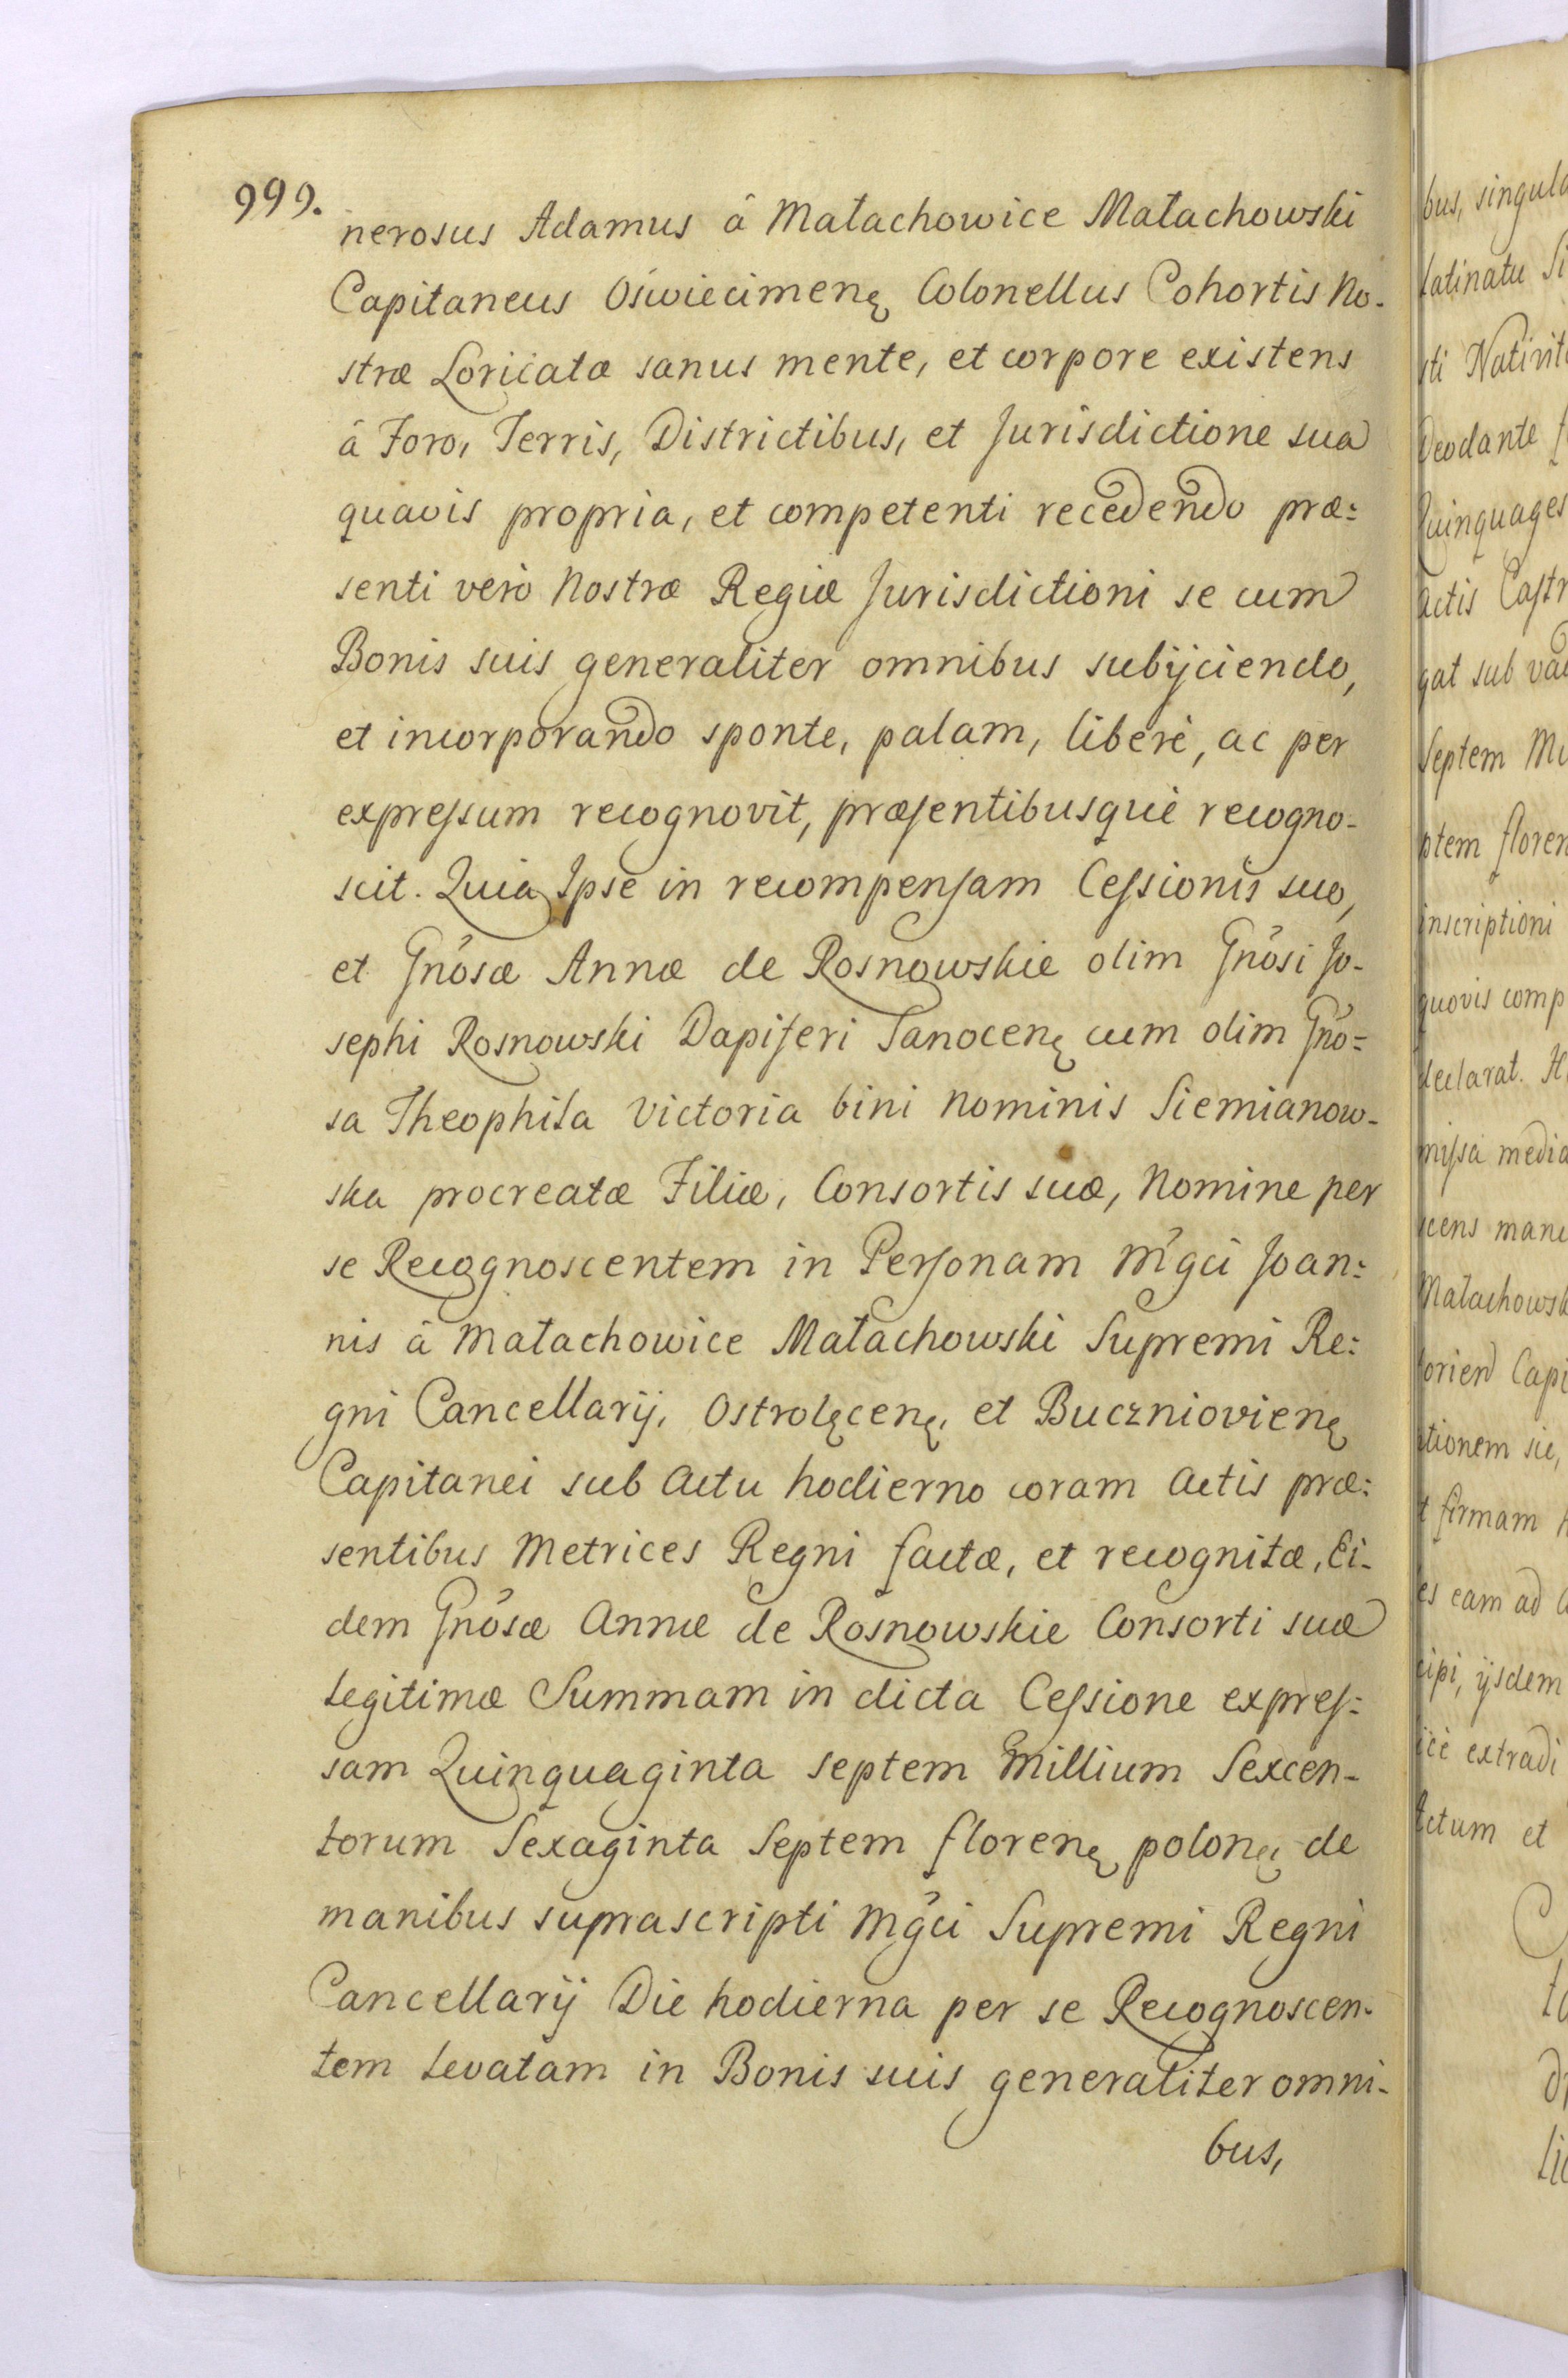 999.
nerosus Adamus â Małachowice Małachowski
Capitaneus Oświecimenę Colonellus Cohortis No-
stræ Loricatæ sanus mente, et corpore existens
â Foro, Terris, Districtibus, et Jurisdictione sua
quavis propria, et competenti recedendo præ:
senti verò Nostræ Regiæ Jurisdictioni se cum
Bonis suis generaliter omnibus subijciendo,
et incorporando sponte, palam, liberè, ac per
expreſsum recognovit, præſentibusquè recogno-
scit. Quia Ipse in recompenſam Ceſsionis suæ,
et Gnõsæ Annæ de Rosnowskie olim Gnõsi Jo-
sephi Rosnowski Dapiferi Sanocenę cum olim Gnõ=
sa Theophila Victoria bini Nominis Siemianow-
ska procreatæ Filiæ, Consortis suæ, Nomine per
se Recognoscentem in Perſonam M̃gci Joan:
nis â Małachowice Małachowski Supremi Re:
gni Cancellarij, Ostrołęcenę, et Buczniovienę
Capitanei sub Actu hodierno coram Actis præ:
sentibus Metrices Regni factæ, et recognitæ, Ei-
dem Gnõsæ Annæ de Rosnowskie Consorti suæ
Legitimæ Summam in dicta Ceſsione expreſ:
sam Quinquaginta septem Millium Sexcen-
torum Sexaginta Septem florenę polonę de
manibus suprascripti M̃gci Supremi Regni
Cancellarij Die hodierna per se Recognoscen-
tem Levatam in Bonis suis generaliter omni-
bus,
bus, singula
latinatu Si
sti Nativit
Deodante f
Quinquages
Actis Caſtr
gat sub va
Septem Mi
ptem floren
inscriptioni
quovis comp
declarat. H
miſsa media
scens mane
Małachowsk
Capi
tionem sic,
t firmam
es eam ad
cipi, ijsdem
icè extradi
ctum et